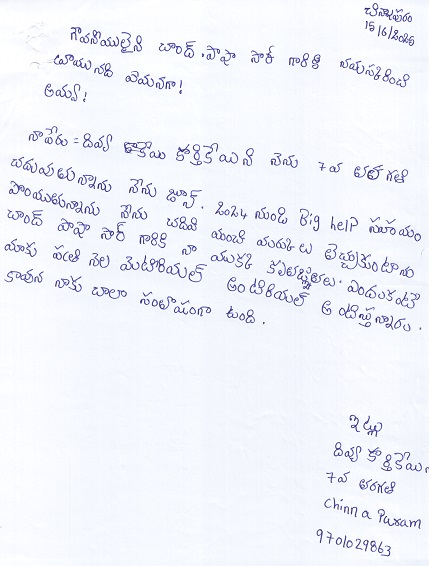 చిన్నాపురం
15/6/2025
గౌవనీయులైన చాంద్.పాషా సార్ గారికి నమస్కరించి
వ్రాయునది ఏమనగా!
అయ్యా!
నాపేరు = దివ్య కార్తికేయిని నేను 7వ తరగతి
చదువుతున్నాను నేను జూన్. 2024 నుండి Big help సహాయం
పొందుతున్నాను నేను చదివి మంచి మార్కులు తెచ్చుకుంటాను
చాంద్ పాషా సార్ గారికి నా యొక్క కృతజ్ఞతలు. ఎందుకంటే
మాకు ప్రతి నెల మెటీరియల్ అంటిరియల్ అందిస్తున్నారు.
కావున నాకు చాలా సంతోషంగా ఉంది.
ఇట్లు
దివ్య కార్తికేయిని
7వ తరగతి
Chinna Puram
9701029863